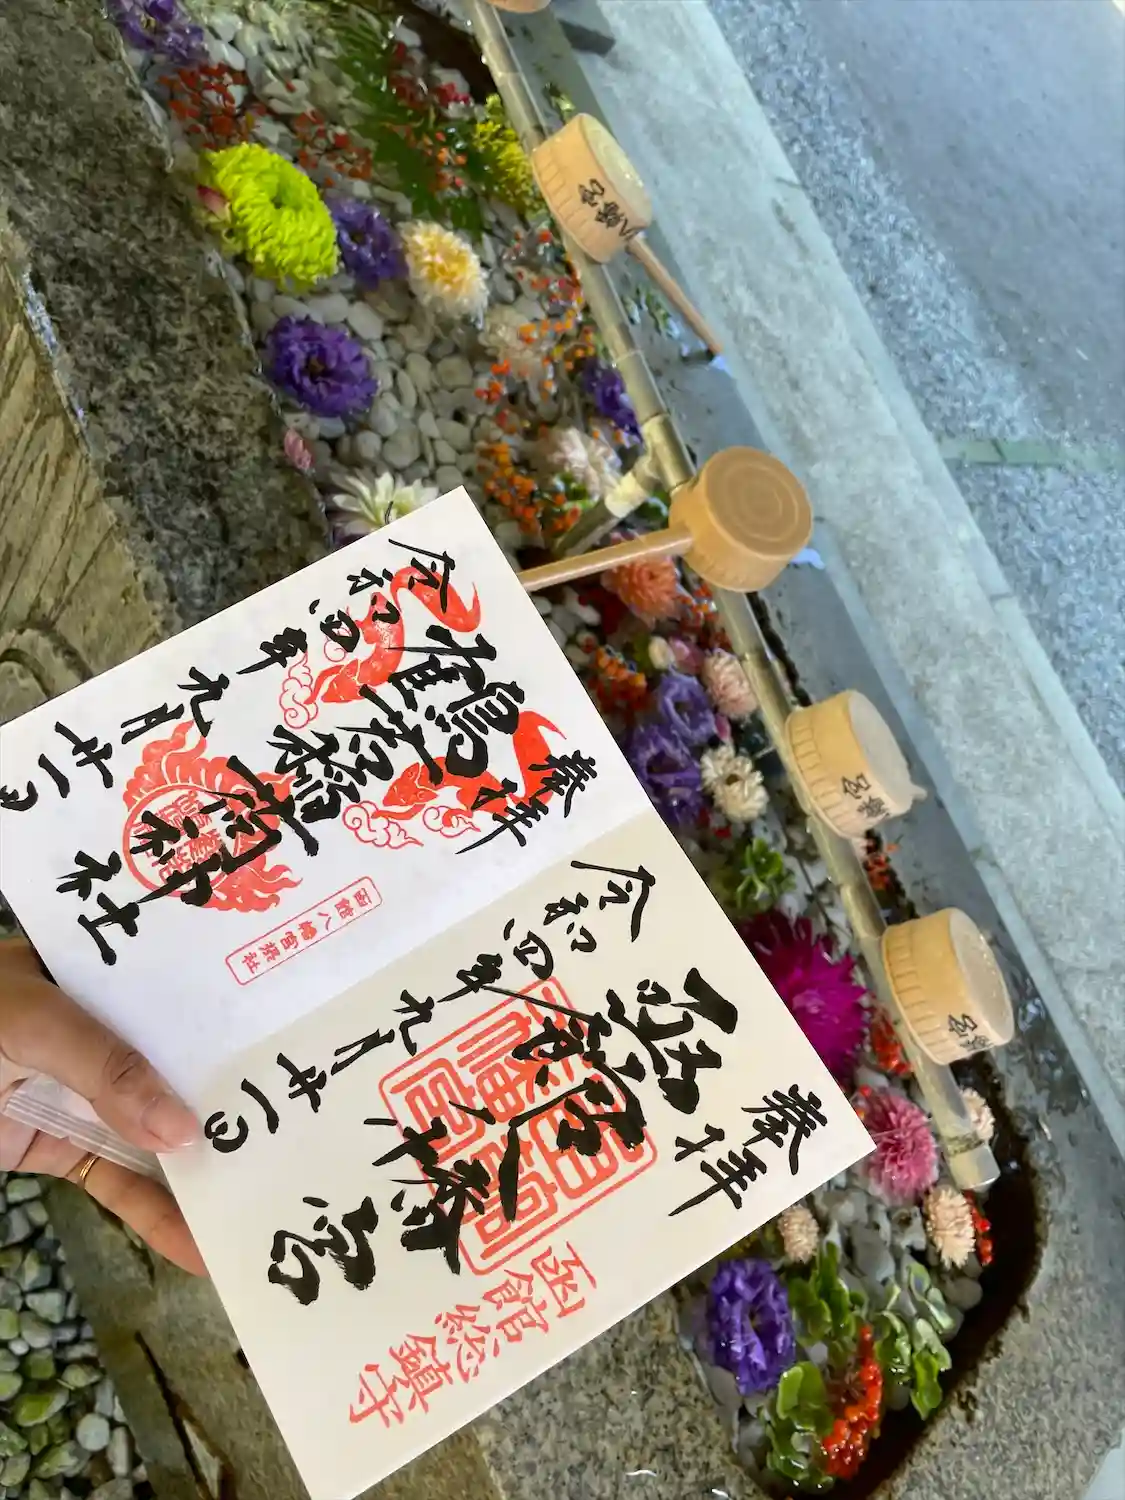 奉拝
函館八幡宮
令和四年九月廿一日
函館総鎮守
奉拝
鶴若稲荷神社
令和四年九月廿一日
函館八幡宮
八幡宮
幡宮
幡宮